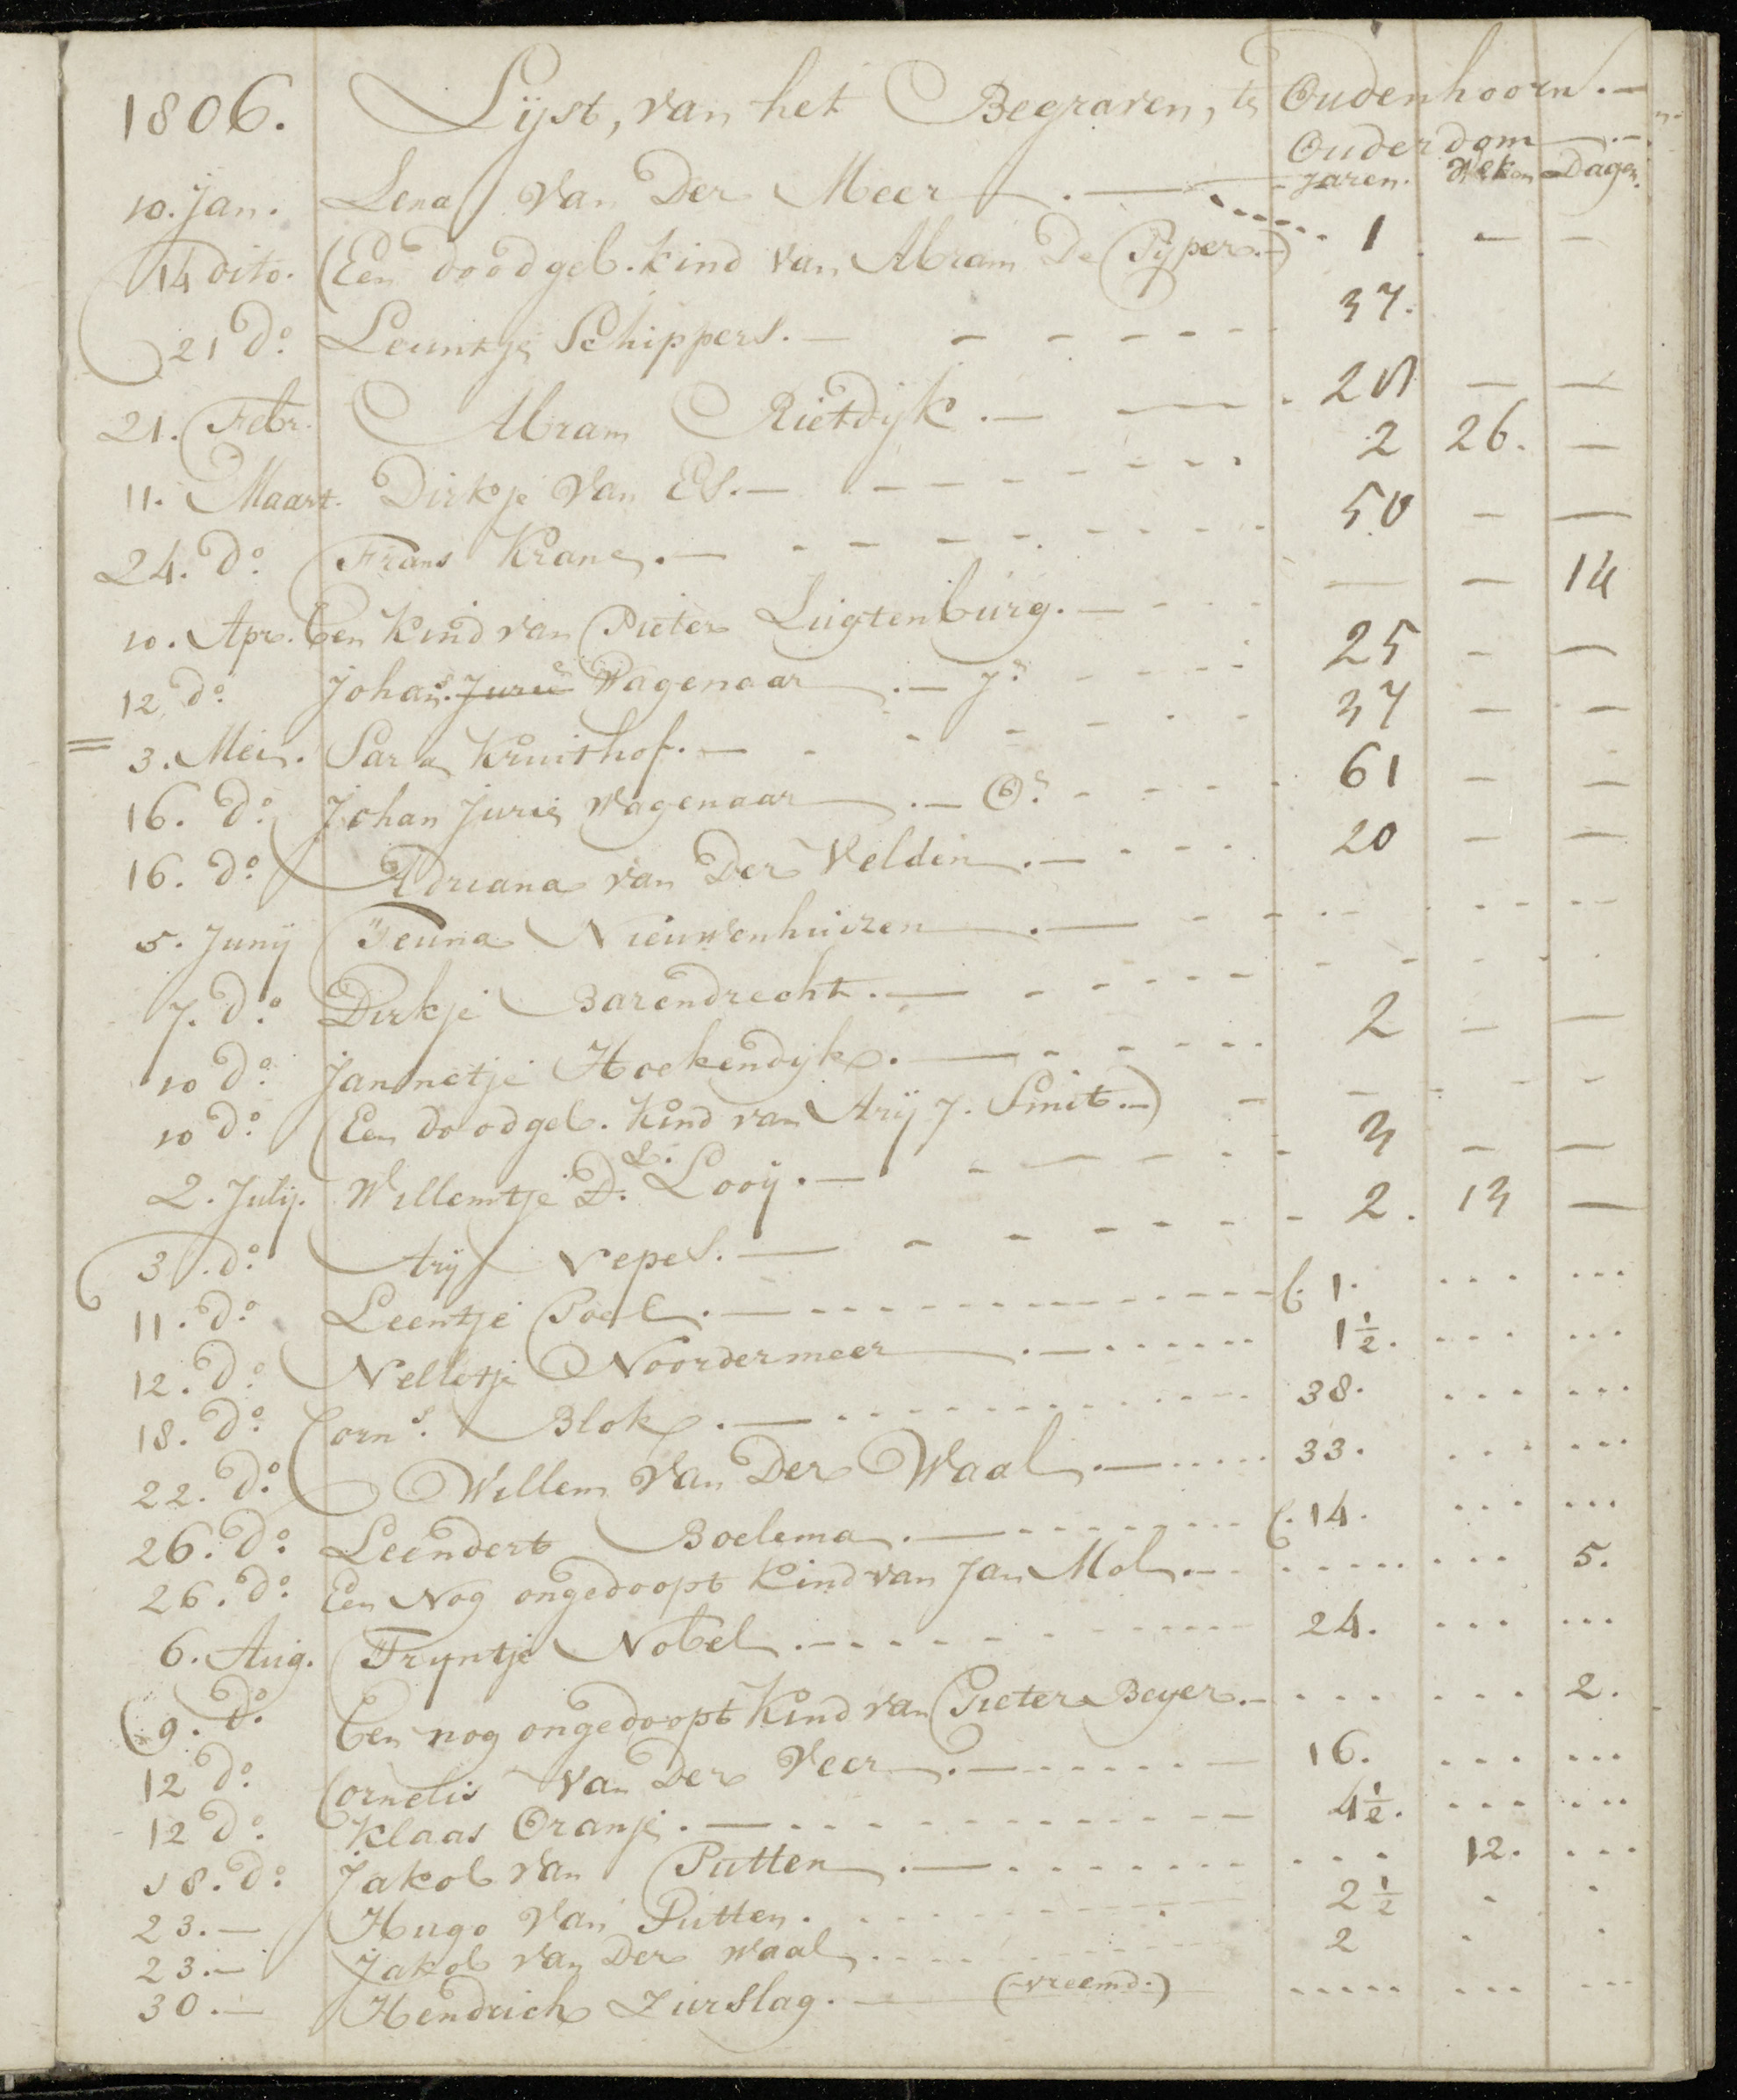 1806. Lijst, van het Begraven, te Oudenhoorn. —
Ouderdom —.—
Jaren. Weken Dagen.
10. Jan. Lena Van Der Meer . — 1 — —
14 dito. (Een doodgeb. kind van Abram De Pijper.—)
21 do. Leuntje Schippers. — 37.
21. Febr. Abram Rietdijk. — 28 — —
11. Maart. Dirkje Van Es. — 2 26. —
24. do. Frans Krane. — 58 — —
10. Apr. Een Kind van Pieter Lugtenburg. — — — 14
12 do. Johans. Jurie Wagenaar . — Jr. 25 — —
= 3. Mei. Sara Kruithof. — 37 — —
16. do. Johan Jurie Wagenaar . — Or. 61 — —
16. do. Adriana van Der Velden . — 20 — —
5. Junij Teuna Nieuwenhuizen . —
7. do. Dirkje Barendrecht. —
10 do. Jannetje Hoekendijk. — 2 — —
10 do. (Een doodgeb. Kind van Arij J. Smit.—)
2. Julij. Willemtje D. L. Looij. — 3 — —
3. do. Arij Vepes. — 2. 13 —
11. do. Leentje Poel. — C. 1. ... ...
12. do. Nelletje Noordermeer . — 1½. ... ...
18. do. Corns. Blok . — 38. ... ...
22. do. Willem Van Der Waal . — 33. ... ...
26. do. Leendert Boelema . — C. 14. ... ...
26. do. Een Nog ongedoopt Kind van Jan Mol. — ... ... 5.
6. Aug. Tryntje Nobel . — 24. ... ...
9. do. Een nog ongedoopt Kind van Pieter Beyer. — ... ... 2.
12 do. Cornelis Van Der Veer . — 16. ... ...
12 do. Klaas Oranje . — 4½. ... ...
18. do. Jakob van Putten . — ... 12. ...
23. — Hugo Van Putten . 2½ . .
23. — Jakob van Der Waal . 2 . .
30. — Hendrich Zurslag. — (vreemd.) ... ... ...